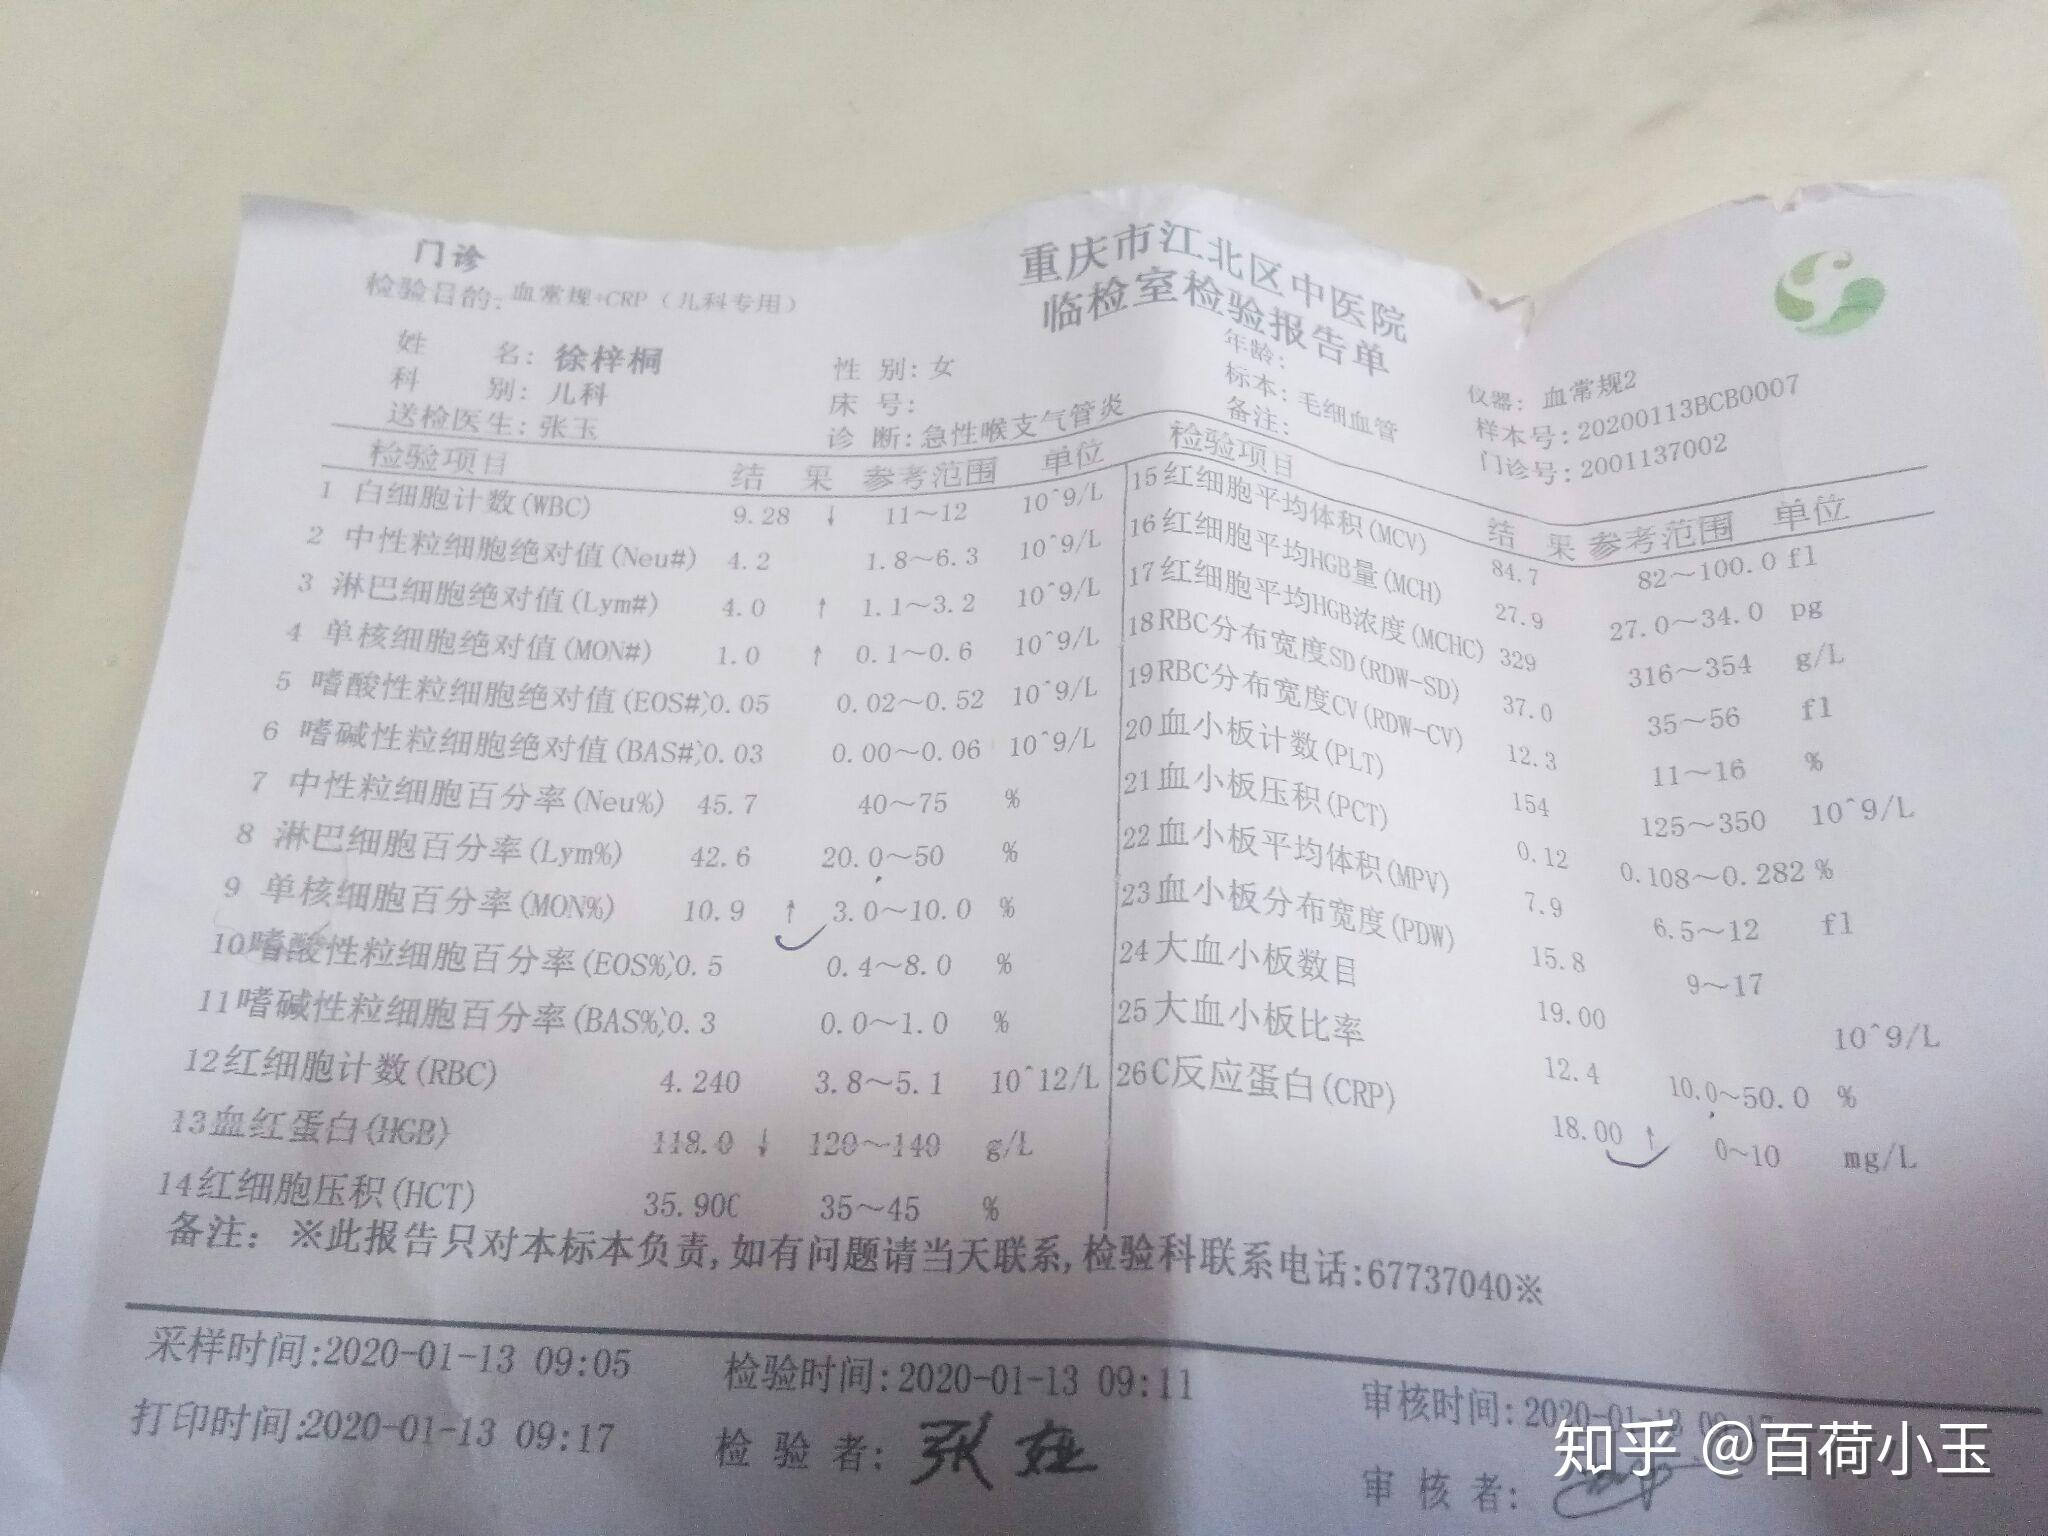 门诊
重庆市江北区中医院
临检室检验报告单
检验目的: 血常规+CRP（儿科专用）
姓 名: 徐梓桐 性 别: 女 年龄: 仪器: 血常规2
科 别: 儿科 床 号: 标本: 毛细血管 样本号: 20200113BCB0007
送检医生: 张玉 诊 断: 急性喉支气管炎 备注: 门诊号: 2001137002
检验项目 结 果 参考范围 单位
1 白细胞计数(WBC) 9.28 ↓ 11～12 10^9/L
2 中性粒细胞绝对值(Neu#) 4.2 1.8～6.3 10^9/L
3 淋巴细胞绝对值(Lym#) 4.0 ↑ 1.1～3.2 10^9/L
4 单核细胞绝对值(MON#) 1.0 ↑ 0.1～0.6 10^9/L
5 嗜酸性粒细胞绝对值(EOS#) 0.05 0.02～0.52 10^9/L
6 嗜碱性粒细胞绝对值(BAS#) 0.03 0.00～0.06 10^9/L
7 中性粒细胞百分率(Neu%) 45.7 40～75 %
8 淋巴细胞百分率(Lym%) 42.6 20.0～50 %
9 单核细胞百分率(MON%) 10.9 ↑ 3.0～10.0 %
10 嗜酸性粒细胞百分率(EOS%) 0.5 0.4～8.0 %
11 嗜碱性粒细胞百分率(BAS%) 0.3 0.0～1.0 %
12 红细胞计数(RBC) 4.240 3.8～5.1 10^12/L
13 血红蛋白(HGB) 118.0 ↓ 120～140 g/L
14 红细胞压积(HCT) 35.900 35～45 %
检验项目 结 果 参考范围 单位
15 红细胞平均体积(MCV) 84.7 82～100.0 fl
16 红细胞平均HGB量(MCH) 27.9 27.0～34.0 pg
17 红细胞平均HGB浓度(MCHC) 329 316～354 g/L
18 RBC分布宽度SD(RDW-SD) 37.0 35～56 fl
19 RBC分布宽度CV(RDW-CV) 12.3 11～16 %
20 血小板计数(PLT) 154 125～350 10^9/L
21 血小板压积(PCT) 0.12 0.108～0.282 %
22 血小板平均体积(MPV) 7.9 6.5～12 fl
23 血小板分布宽度(PDW) 15.8 9～17
24 大血小板数目 19.00 10^9/L
25 大血小板比率 12.4 10.0～50.0 %
26 C反应蛋白(CRP) 18.00 ↑ 0～10 mg/L
备注: ※此报告只对本标本负责,如有问题请当天联系,检验科联系电话:67737040※
采样时间:2020-01-13 09:05 检验时间:2020-01-13 09:11 审核时间:2020-01-13 09:17
打印时间:2020-01-13 09:17 检 验 者: 张 审 核 者:
知乎 @百荷小玉